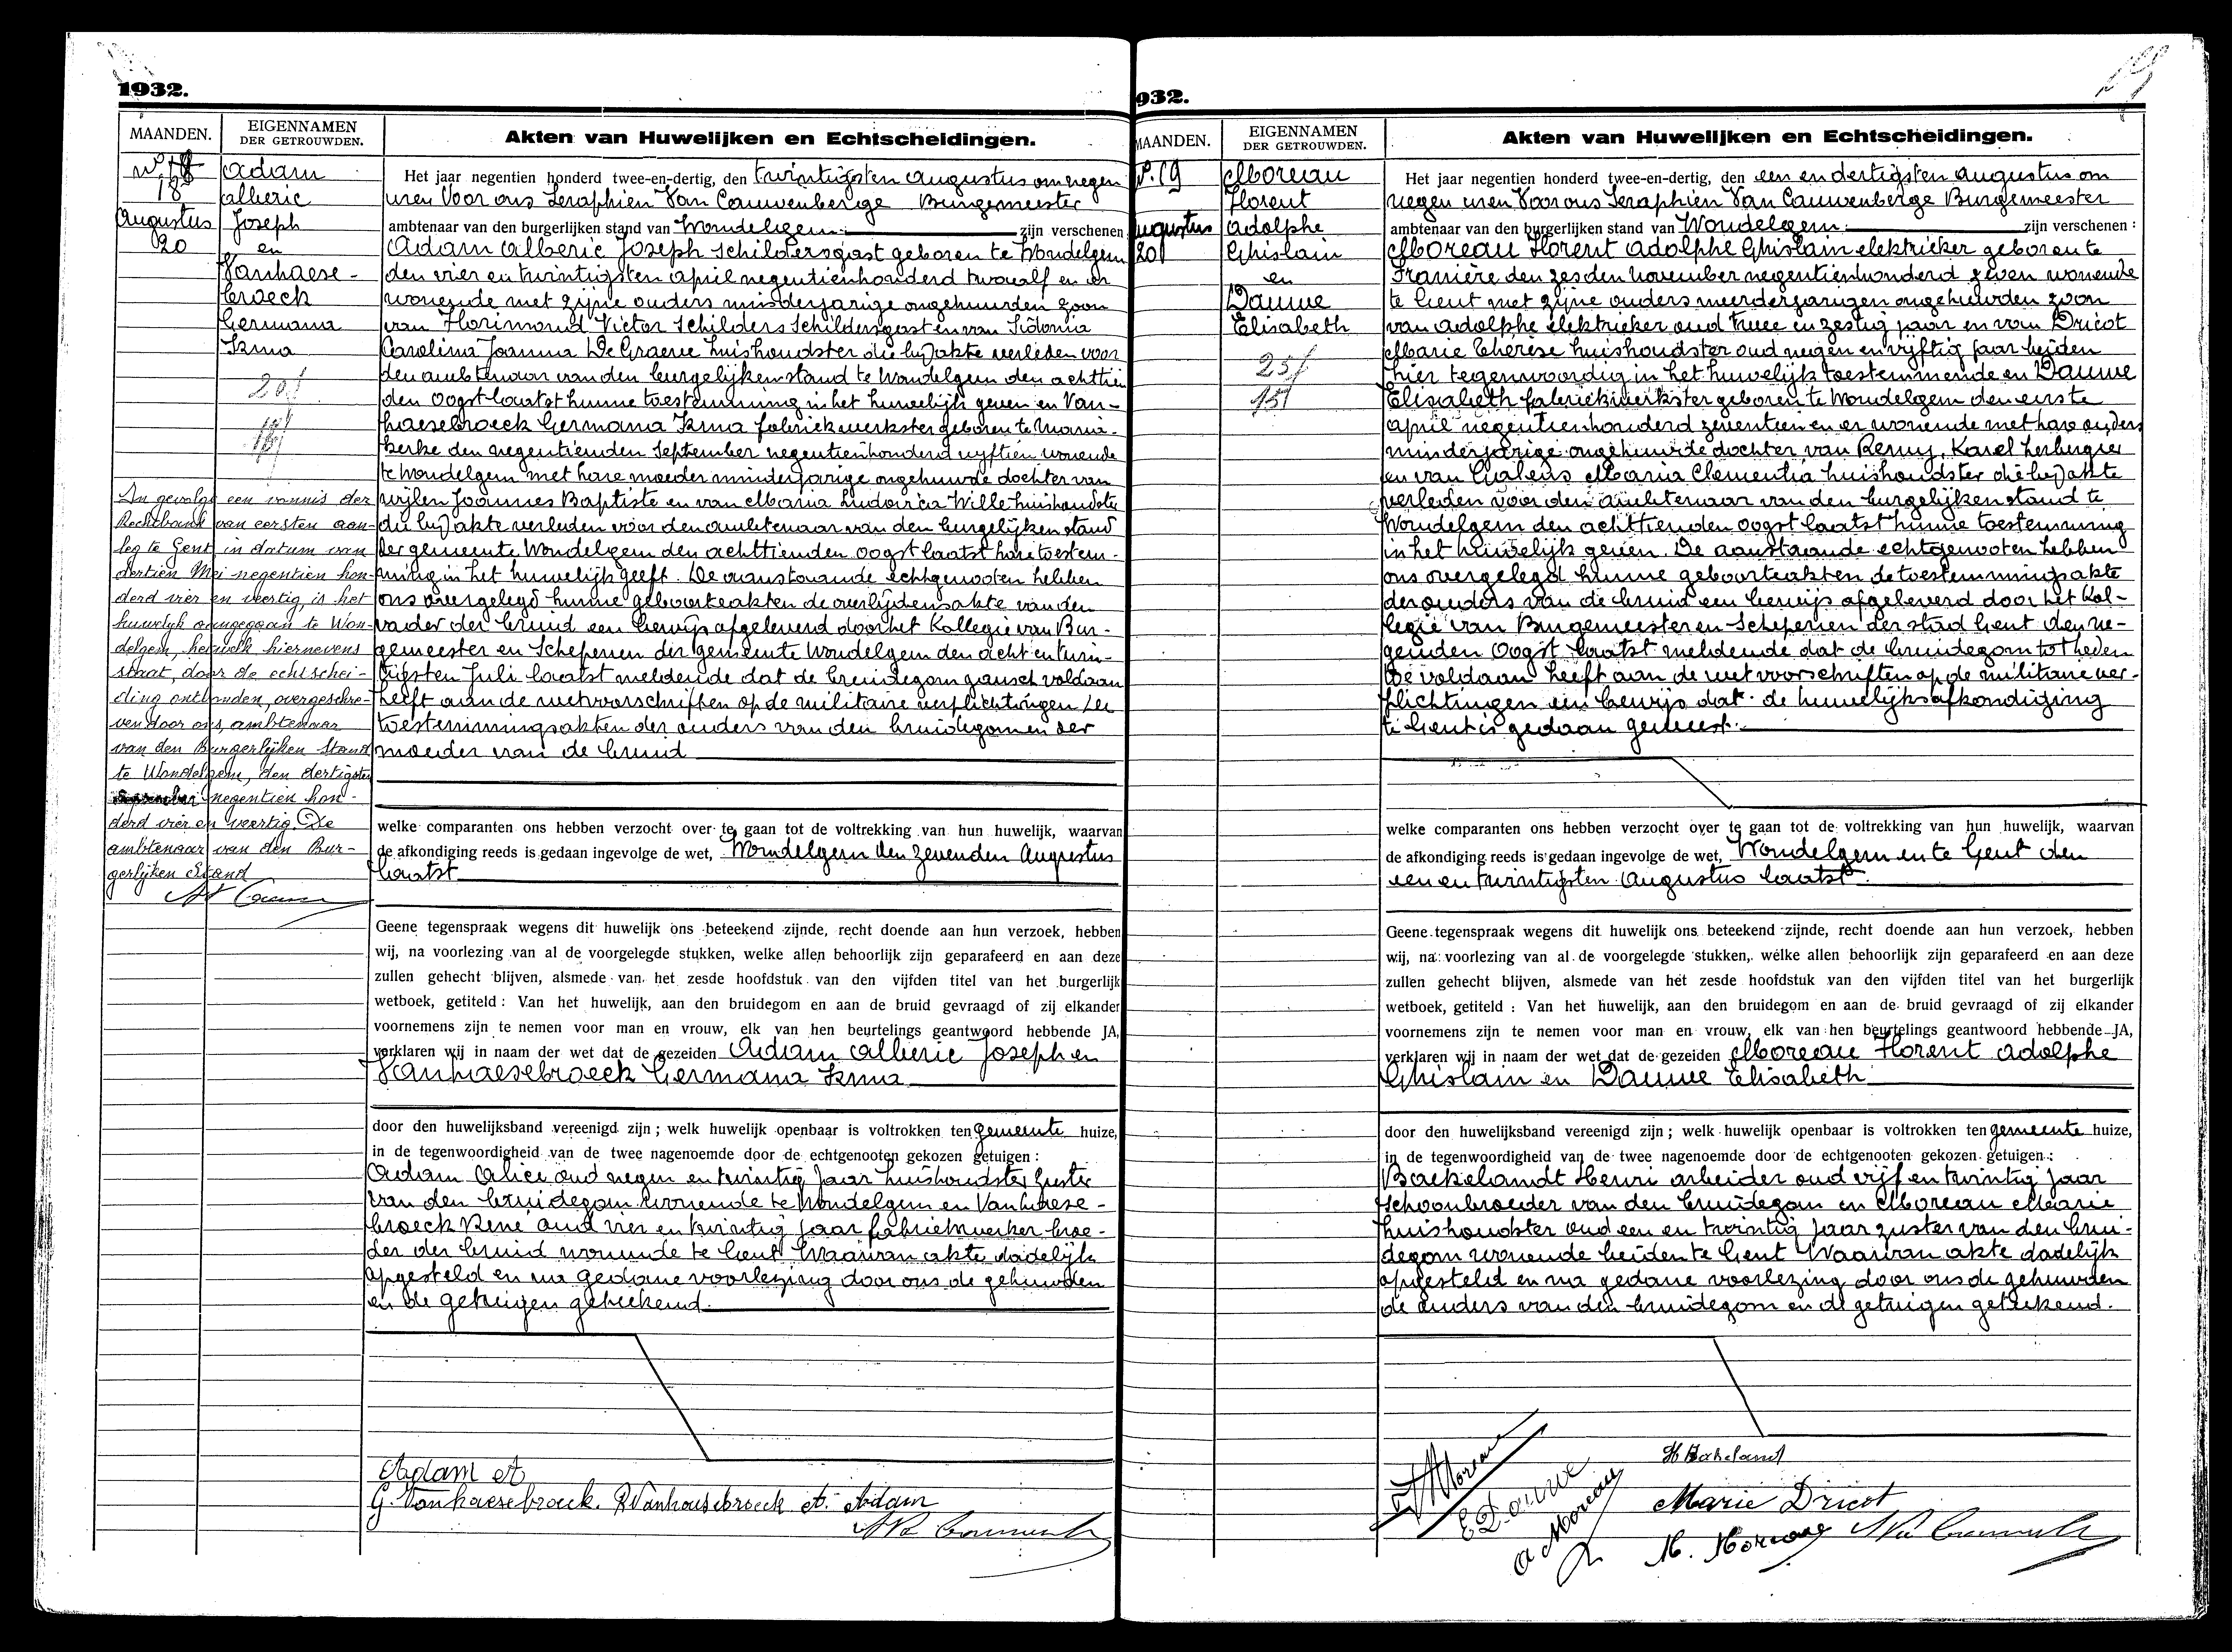 1932.
MAANDEN.
EIGENNAMEN
DER GETROUWDEN.
Akten van Huwelijken en Echtscheidingen.
18
Augustus
20
Adam
Alberic
Joseph
en
Vanhaese-
broeck
Germana
Irma
20/
In gevolge een vonnis der
Rechtbank van eersten aan-
leg te Gent in datum van
dertien Mei negentien hon-
derd vier en veertig, is het
huwelijk aangegaan te Won-
delgem, hetwelk hiernevens
staat, door de echtschei-
ding ontbonden, overgeschre-
ven door ons, ambtenaar
van den Burgerlijken Stand
te Wondelgem, den dertigsten
negentien hon-
derd vier en veertig. De
ambtenaar van den Bur-
gerlijken Stand
Het jaar negentien honderd twee-en-dertig, den twintigsten Augustus om negen
uren Voor ons Seraphien Van Cauwenberge Burgemeester
ambtenaar van den burgerlijken stand van Wondelgem zijn verschenen
Adam Alberic Joseph Schildersgast geboren te Wondelgem
den vier en twintigsten April negentienhonderd twaalf en er
wonende met zijne ouders minderjarige ongehuwden zoon
van Florimond Victor Schilders Schildersgast en van Sidonia
Carolina Joanna De Graeve huishoudster die bij akte verleden voor
den ambtenaar van den burgelijken stand te Wondelgem den achttien
den oogst laatst hunne toestemming in het huwelijk geven en Van-
haesebroeck Germana Irma fabriekwerkster geboren te Maria-
kerke den negentienden September negentienhonderd vijftien wonende
te Wondelgem met hare moeder minderjarige ongehuwde dochter van
wijlen Joannes Baptiste en van Maria Ludovica Wille huishoudster
die bij akte verleden voor den ambtenaar van den burgelijken stand
der gemeente Wondelgem den achttienden oogst laatst hare toestem-
ming in het huwelijk geeft. De aanstaande echtgenooten hebben
ons overgelegd hunne geboorteakten de overlijdensakte van den
vader der bruid een bewijs afgeleverd door het Kollegie van Bur-
gemeester en Schepenen der gemeente Wondelgem den acht en twin-
tigsten Juli laatst meldende dat de bruidegom gansch voldaan
heeft aan de wetvoorschriften op de militaire verplichtingen de
toestemmingsakten der ouders van den bruidegom en der
moeder van de bruid
welke comparanten ons hebben verzocht over te gaan tot de voltrekking van hun huwelijk, waarvan
de afkondiging reeds is gedaan ingevolge de wet, Wondelgem den zevenden Augustus
laatst
Geene tegenspraak wegens dit huwelijk ons beteekend zijnde, recht doende aan hun verzoek, hebben
wij, na voorlezing van al de voorgelegde stukken, welke allen behoorlijk zijn geparafeerd en aan deze
zullen gehecht blijven, alsmede van het zesde hoofdstuk van den vijfden titel van het burgerlijk
wetboek, getiteld : Van het huwelijk, aan den bruidegom en aan de bruid gevraagd of zij elkander
voornemens zijn te nemen voor man en vrouw, elk van hen beurtelings geantwoord hebbende JA,
verklaren wij in naam der wet dat de gezeiden Adam Alberic Joseph en
Vanhaesebroeck Germana Irma
door den huwelijksband vereenigd zijn ; welk huwelijk openbaar is voltrokken ten gemeente huize,
in de tegenwoordigheid van de twee nagenoemde door de echtgenooten gekozen getuigen :
Adam Alice oud negen en twintig jaar huishoudster zuster
van den bruidegom wonende te Wondelgem en Vanhaese-
broeck René oud vier en twintig jaar fabriekwerker broe-
der der bruid wonende te Gent Waarvan akte dadelijk
opgesteld en na gedane voorlezing door ons de gehuwden
en de getuigen geteekend.
Adam A
G. Vanhaesebroeck. R Vanhaesebroeck A. Adam
932.
MAANDEN.
EIGENNAMEN
DER GETROUWDEN.
Akten van Huwelijken en Echtscheidingen.
19
N. 19
Augustus
20
Moreau
Florent
Adolphe
Ghislain
en
Dauwe
Elisabeth
25/
15/
Het jaar negentien honderd twee-en-dertig, den een en dertigsten Augustus om
negen uren Voor ons Seraphien Van Cauwenberge Burgemeester
ambtenaar van den burgerlijken stand van Wondelgem zijn verschenen :
Moreau Florent Adolphe Ghislain elektrieker geboren te
Franière den zesden November negentienhonderd zeven wonende
te Gent met zijne ouders meerderjarigen ongehuwden zoon
van Adolphe elektrieker oud twee en zestig jaar en van Dricot
Marie Thérèse huishoudster oud negen en vijftig jaar beiden
hier tegenwoordig in het huwelijk toestemmende en Dauwe
Elisabeth fabriekwerkster geboren te Wondelgem den eerste
April negentienhonderd zeventien en er wonende met hare ouders
minderjarige ongehuwde dochter van Remy, Karel herbergier
en van Maria Clementia huishoudster die bij akte
verleden voor den ambtenaar van den burgelijken stand te
Wondelgem den achttienden oogst laatst hunne toestemming
in het huwelijk geven. De aanstaande echtgenooten hebben
ons overgelegd hunne geboorteakten de toestemmingsakte
der ouders van de bruid een bewijs afgeleverd door het Kol-
legie van Burgemeester en Schepenen der stad Gent den ne-
genden Oogst laatst meldende dat de bruidegom tot heden
toe voldaan heeft aan de wetvoorschriften op de militaire ver-
plichtingen een bewijs dat de huwelijksafkondiging
te Gent is gedaan geweest.
welke comparanten ons hebben verzocht over te gaan tot de voltrekking van hun huwelijk, waarvan
de afkondiging reeds is gedaan ingevolge de wet, Wondelgem en te Gent den
een en twintigsten Augustus laatst
Geene tegenspraak wegens dit huwelijk ons beteekend zijnde, recht doende aan hun verzoek, hebben
wij, na voorlezing van al de voorgelegde stukken, welke allen behoorlijk zijn geparafeerd en aan deze
zullen gehecht blijven, alsmede van het zesde hoofdstuk van den vijfden titel van het burgerlijk
wetboek, getiteld : Van het huwelijk, aan den bruidegom en aan de bruid gevraagd of zij elkander
voornemens zijn te nemen voor man en vrouw, elk van hen beurtelings geantwoord hebbende JA,
verklaren wij in naam der wet dat de gezeiden Moreau Florent Adolphe
Ghislain en Dauwe Elisabeth
door den huwelijksband vereenigd zijn ; welk huwelijk openbaar is voltrokken ten gemeente huize,
in de tegenwoordigheid van de twee nagenoemde door de echtgenooten gekozen getuigen :
Baekelandt Henri arbeider oud vijf en twintig jaar
schoonbroeder van den bruidegom en Moreau Marie
huishoudster oud een en twintig jaar zuster van den brui-
degom wonende beiden te Gent Waarvan akte dadelijk
opgesteld en na gedane voorlezing door ons de gehuwden
de ouders van den bruidegom en de getuigen geteekend.
Moreau
E Dauwe
A Moreau
H Bakeland
Marie Dricot
M. Moreau